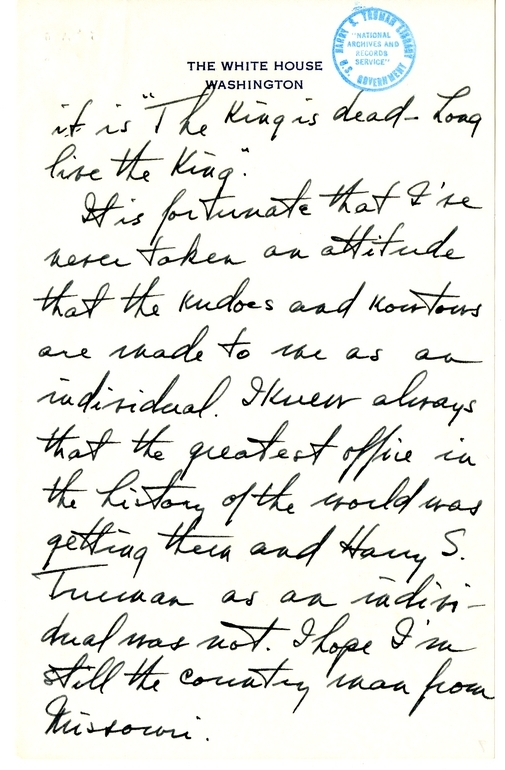 HARRY S. TRUMAN LIBRARY
"NATIONAL
ARCHIVES AND
RECORDS
SERVICE"
U.S. GOVERNMENT
THE WHITE HOUSE
WASHINGTON
it is "The King is dead - Long
live the King".
It is fortunate that I've
never taken an attitude
that the kudoes and kowtows
are made to me as an
individual. I knew always
that the greatest office in
the history of the world was
getting them and Harry S.
Truman as an indivi-
dual was not. I hope I'm
still the country man from
Missouri.